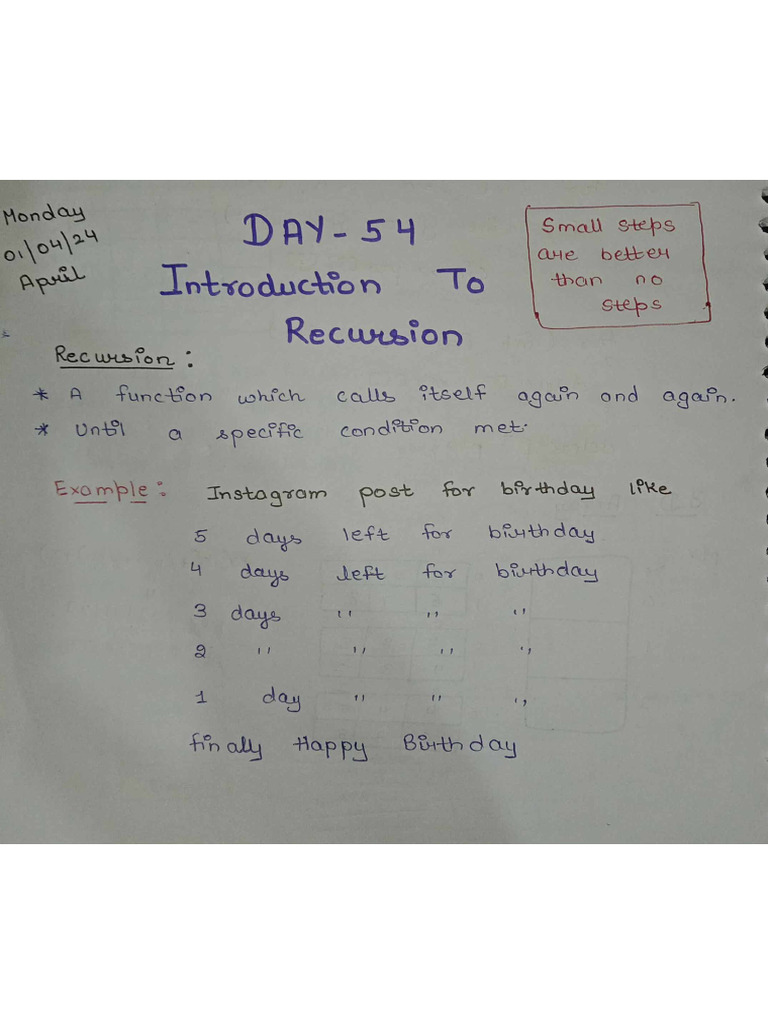 Monday
01/04/24
April
DAY-54
Introduction To
Recursion
Small steps
are better
than no
steps
Recursion:
* A function which calls itself again and again.
* Until a specific condition met.
Example: Instagram post for birthday like
5 days left for birthday
4 days left for birthday
3 days " " "
2 " " " "
1 day " " "
finally Happy Birthday